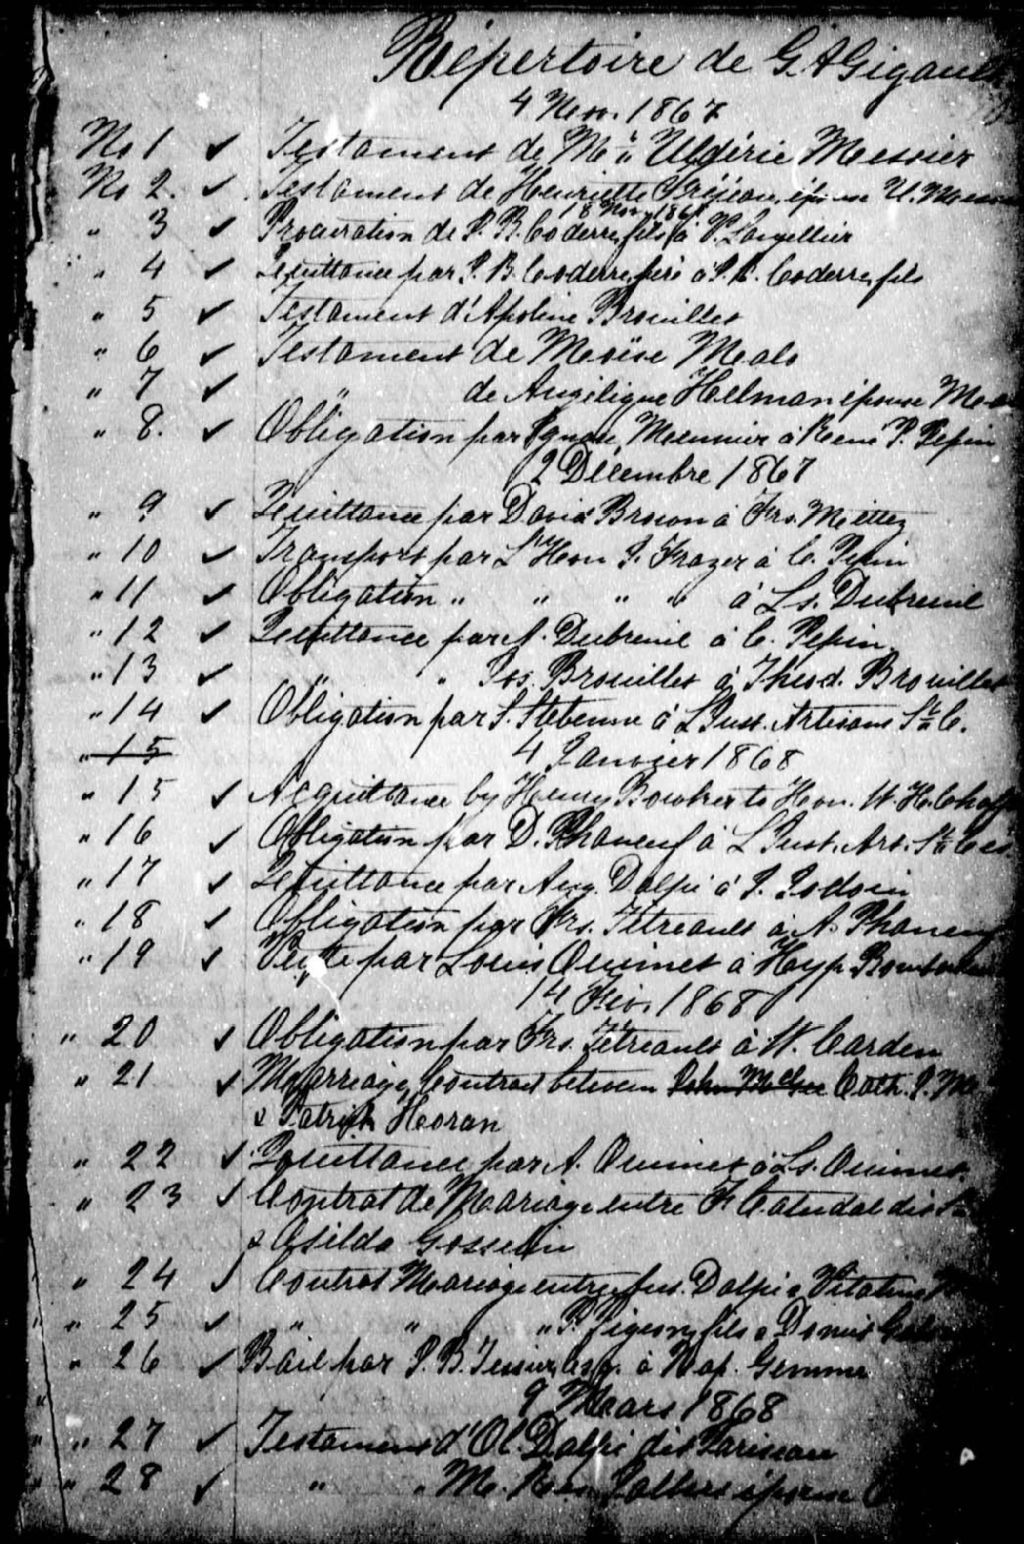 Répertoire de G. A Gigault
4 Nov. 1867
No 1 ✓ Testament de Mr Uldéric Messier
No 2. ✓ Testament de Henriette Fréjeau, épouse U. Messier
18 Nov. 1867
" 3 ✓ Procuration de P. B. Coderre, fils à V. Langellier
" 4 ✓ Quittance par P. B. Coderre, père à P. B. Coderre, fils
" 5 ✓ Testament d'Apoline Brouillet
" 6 ✓ Testament de Moïse
" 7 ✓ " de Angélique Hellman épouse
" 8. ✓ Obligation par Ignace Meunier à René P. Pepin
2 Décembre 1867
" 9 ✓ Quittance par David Brown à Frs.
" 10 ✓ Transport par L'Hon J. Frazer à C. Pepin
" 11 ✓ Obligation " " " " à Ls. Dubreuil
" 12 ✓ Quittance par A. Dubreuil à C. Pepin
" 13 ✓ " " Jos. Brouillet à Théod. Brouillet
" 14 ✓ Obligation par S. Stebenne à L'Inst. Artisans St C.
" 15
4 Janvier 1868
" 15 ✓ Acquittance by Henry Bowker to Hon. W. H.
" 16 ✓ Obligation par D. Phaneuf à L'Inst. Art. St
" 17 ✓ Quittance par Aug. Dalpé à J. Jodoin
" 18 ✓ Obligation par Frs. Tétreault à A. Phaneuf
" 19 ✓ Vente par Louis Ouimet à Hyp.
14 Fév. 1868
" 20 ✓ Obligation par Frs. Tétreault à W. Carden
" 21 ✓ Marriage Contract between John McGee Cath. J.
& Patrick Hooran
" 22 ✓ Quittance par A. Ouimet à Ls. Ouimet
" 23 ✓ Contrat de Mariage entre F. Catudal dit
& Osilda Gosselin
" 24 ✓ Contrat Mariage entre Jos. Dalpé & Vitaline
" 25 ✓ " " " P. Pigeon, fils &
" 26 ✓ Bail par P. B. Tessier, esq. à Nap. Gemme
9 Mars 1868
" 27 ✓ Testament d'Ol. Dalpé dit Pariseau
" 28 ✓ " " M. épouse